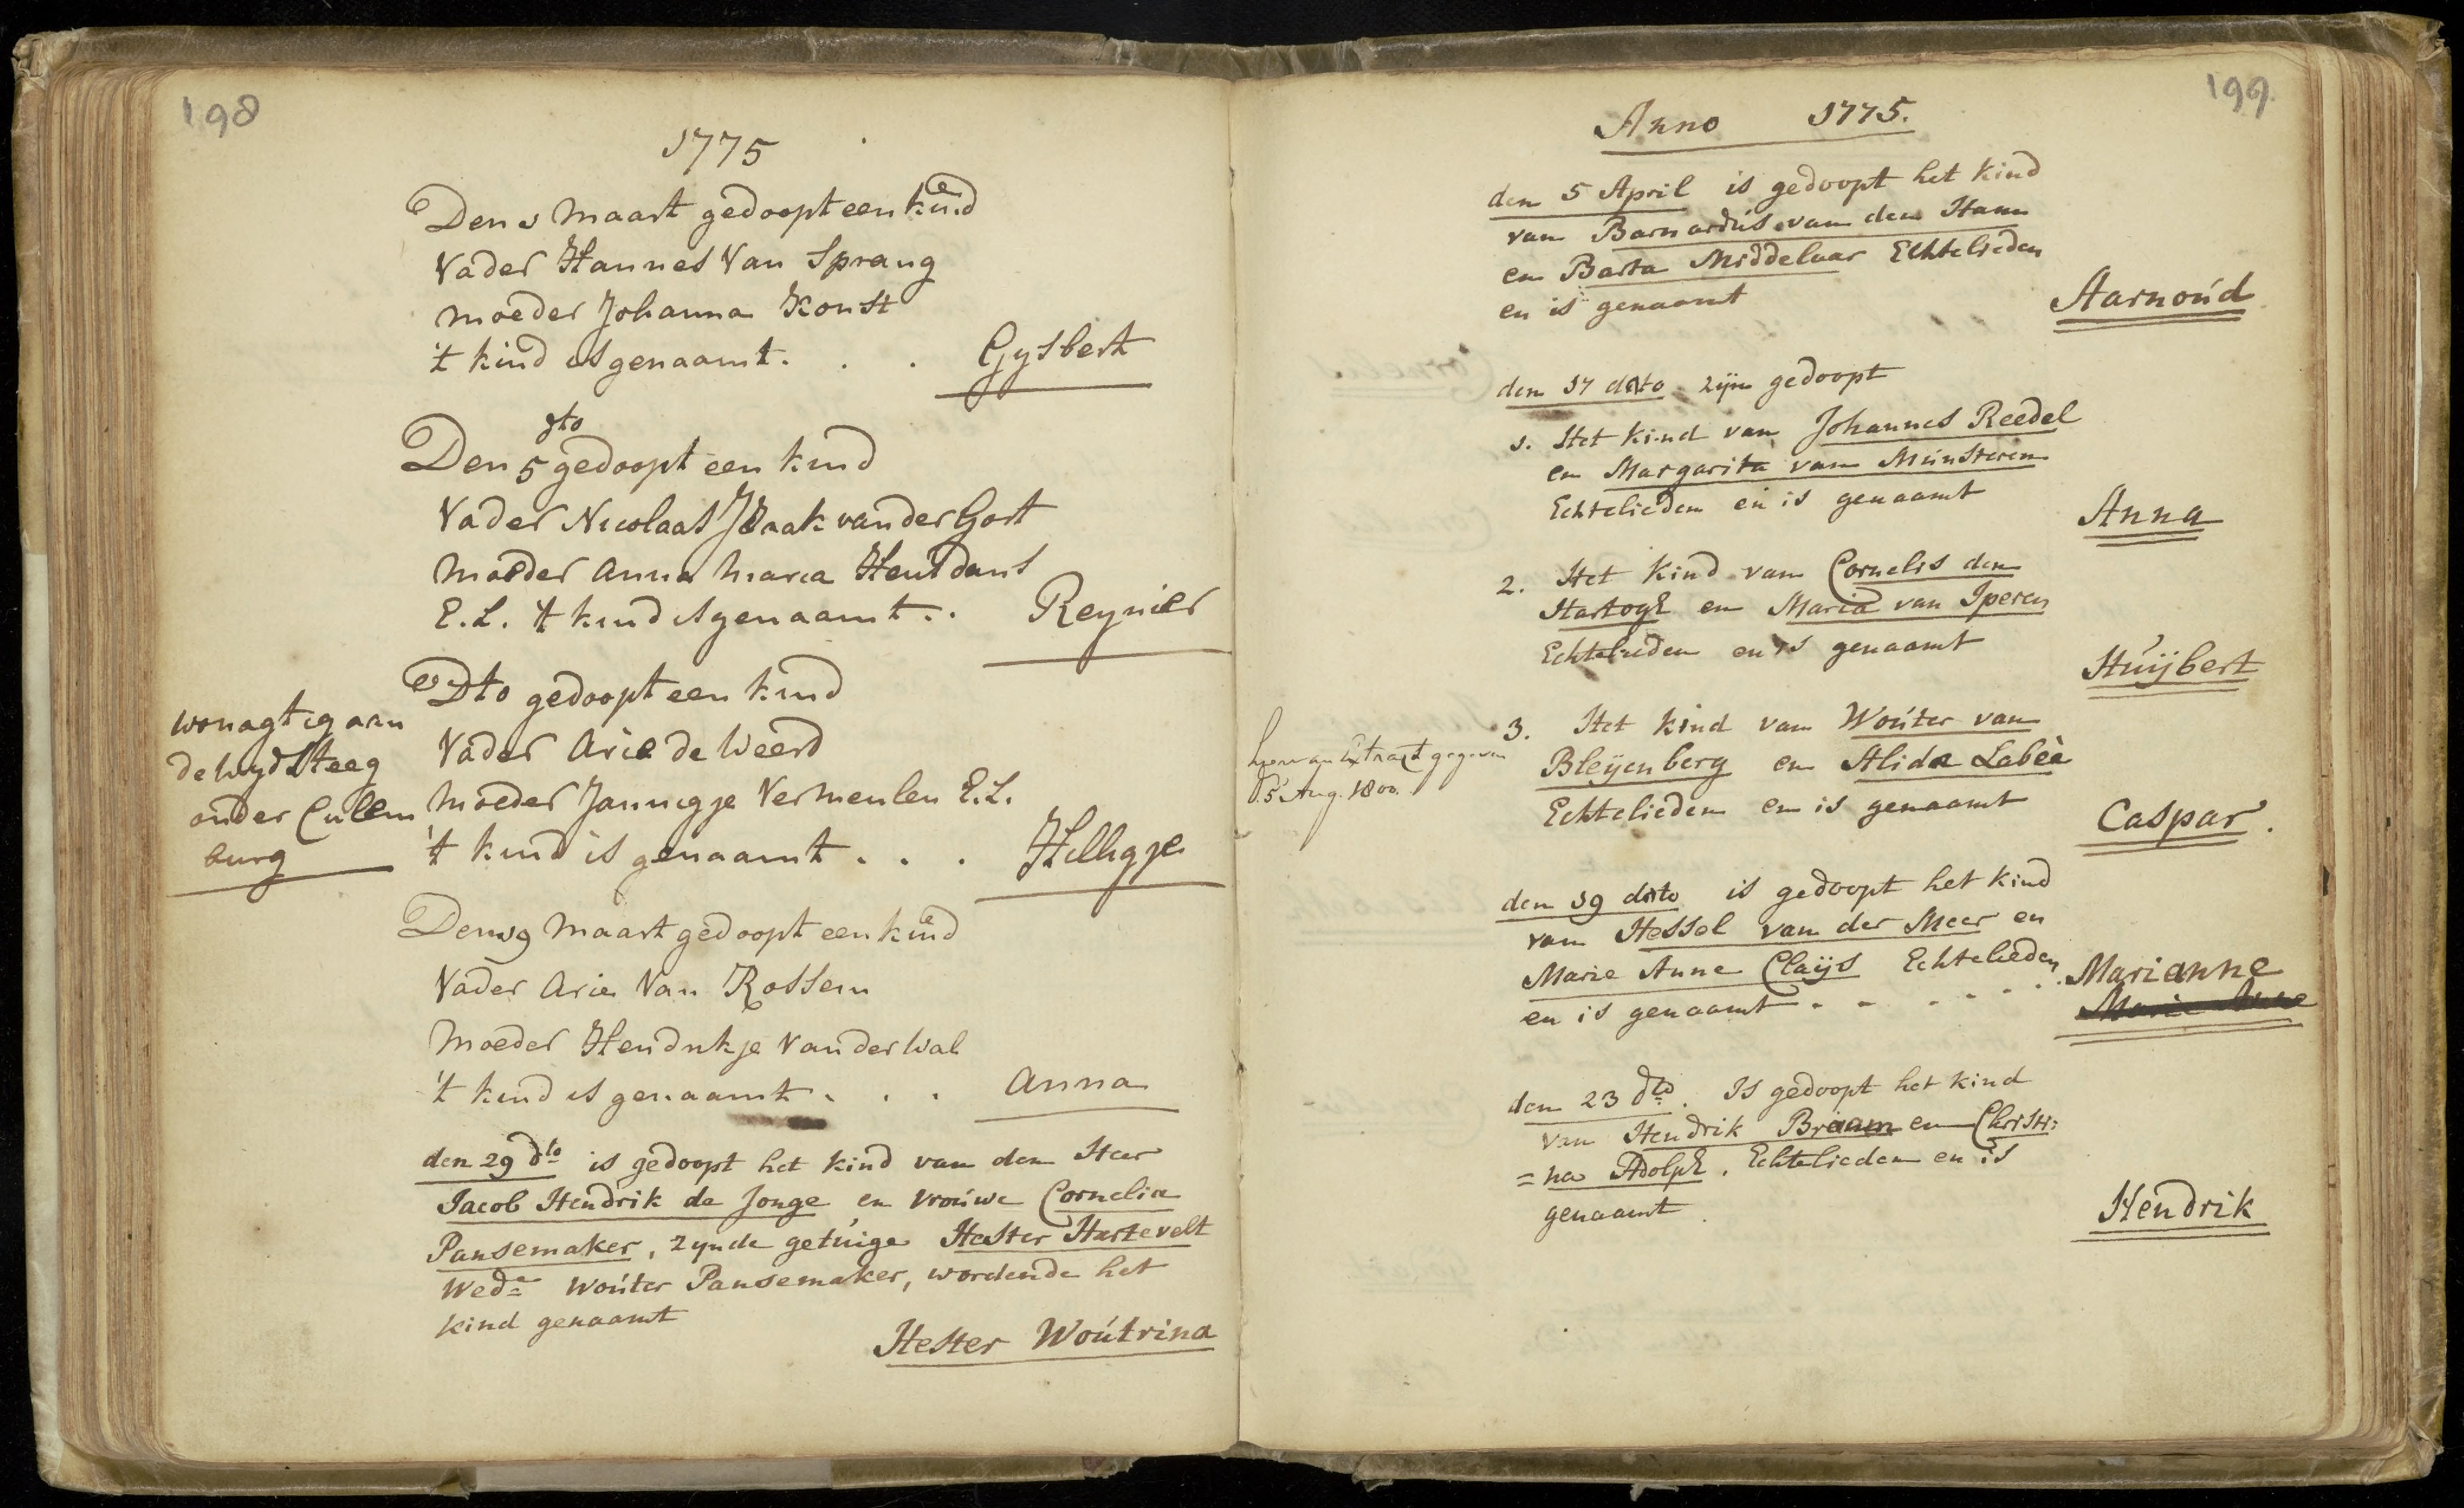 198
1775
Den 1 Maart gedoopt een kind
Vader Hannes Van Sprang
Moeder Johanna Konst
't kind is genaamt . . . Gysbert
Den 5 dto gedoopt een kind
Vader Nicolaas Isaak van der Gort
Moeder Anna Maria Heusdans
E.L. 't kind is genaamt . . Reynier
Dto gedoopt een kind
Vader Arie de Weerd
Moeder Jannigje Vermeulen E.L.
't kind is genaamt . . . Hilligje
wonagtig aan
de wydsteeg
onder Culem
burg
Den 19 Maart gedoopt een kind
Vader Arie Van Rossem
Moeder Hendrikje Van der Wal
't kind is genaamt . . . Anna
den 29 dto is gedoopt het kind van den Heer
Jacob Hendrik de Jonge en vrouwe Cornelia
Pansemaker, zynde getuige Hester Hartevelt
Wede Wouter Pansemaker, wordende het
kind genaamt
Hester Woutrina
199.
Anno 1775.
den 5 April is gedoopt het kind
van Barnardus van den Ham
en Barta Middelaar Echtelieden
en is genaamt
Aarnoud
den 17 dito zijn gedoopt
1. Het kind van Johannes Reedel
en Margarita van Munsteren
Echtelieden en is genaamt
Anna
2. Het kind van Cornelis den
Hartogh en Maria van Iperen
Echtelieden en is genaamt
Huijbert
3. Het kind van Wouter van
Bleijenberg en Alida Labeè
Echtelieden en is genaamt
Caspar.
hiervan Extract gegeven
d. 5 Aug. 1800.
den 19 dito is gedoopt het kind
van Hessel van der Meer en
Marie Anne Claijs Echtelieden
en is genaamt . . . . . . Marianne
Marie Anne
den 23 dto. Is gedoopt het kind
van Hendrik Braam en Christi=
=na Adolph. Echtelieden en is
genaamt
Hendrik